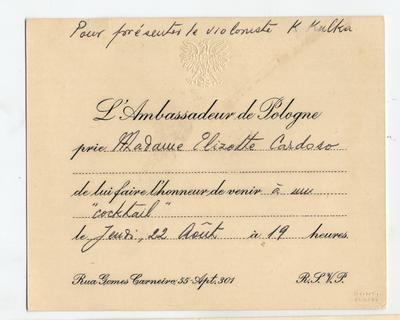 Pour présenter le violoniste K Kulka
L'Ambassadeur de Pologne
prie Madame Elizette Cardoso
de lui faire l'honneur de venir à un
"cocktail"
le Jeudi, 22 Août à 19 heures.
Rua Gomes Carneiro, 55-Apt. 301 R.S.V.P.